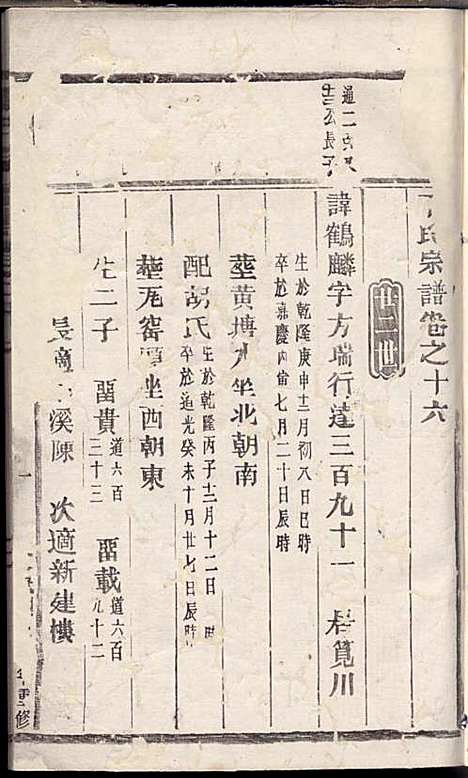 氏宗譜卷之十六
廿二世
諱鶴麟字方瑞行蓬三百九十一
居筧川
生於乾隆庚申十二月初八日巳時
卒於嘉慶丙甯七月二十日辰時
葬黃塘 坐北朝南
配胡氏
生於乾隆丙子十二月十二日 時
卒於道光癸未十月廿七日辰時
葬瓦窑 坐西朝東
生二子
留貴
道六百
三十三
留載
道六百
九十二
長適 溪陳
次適新建樓
一
重修